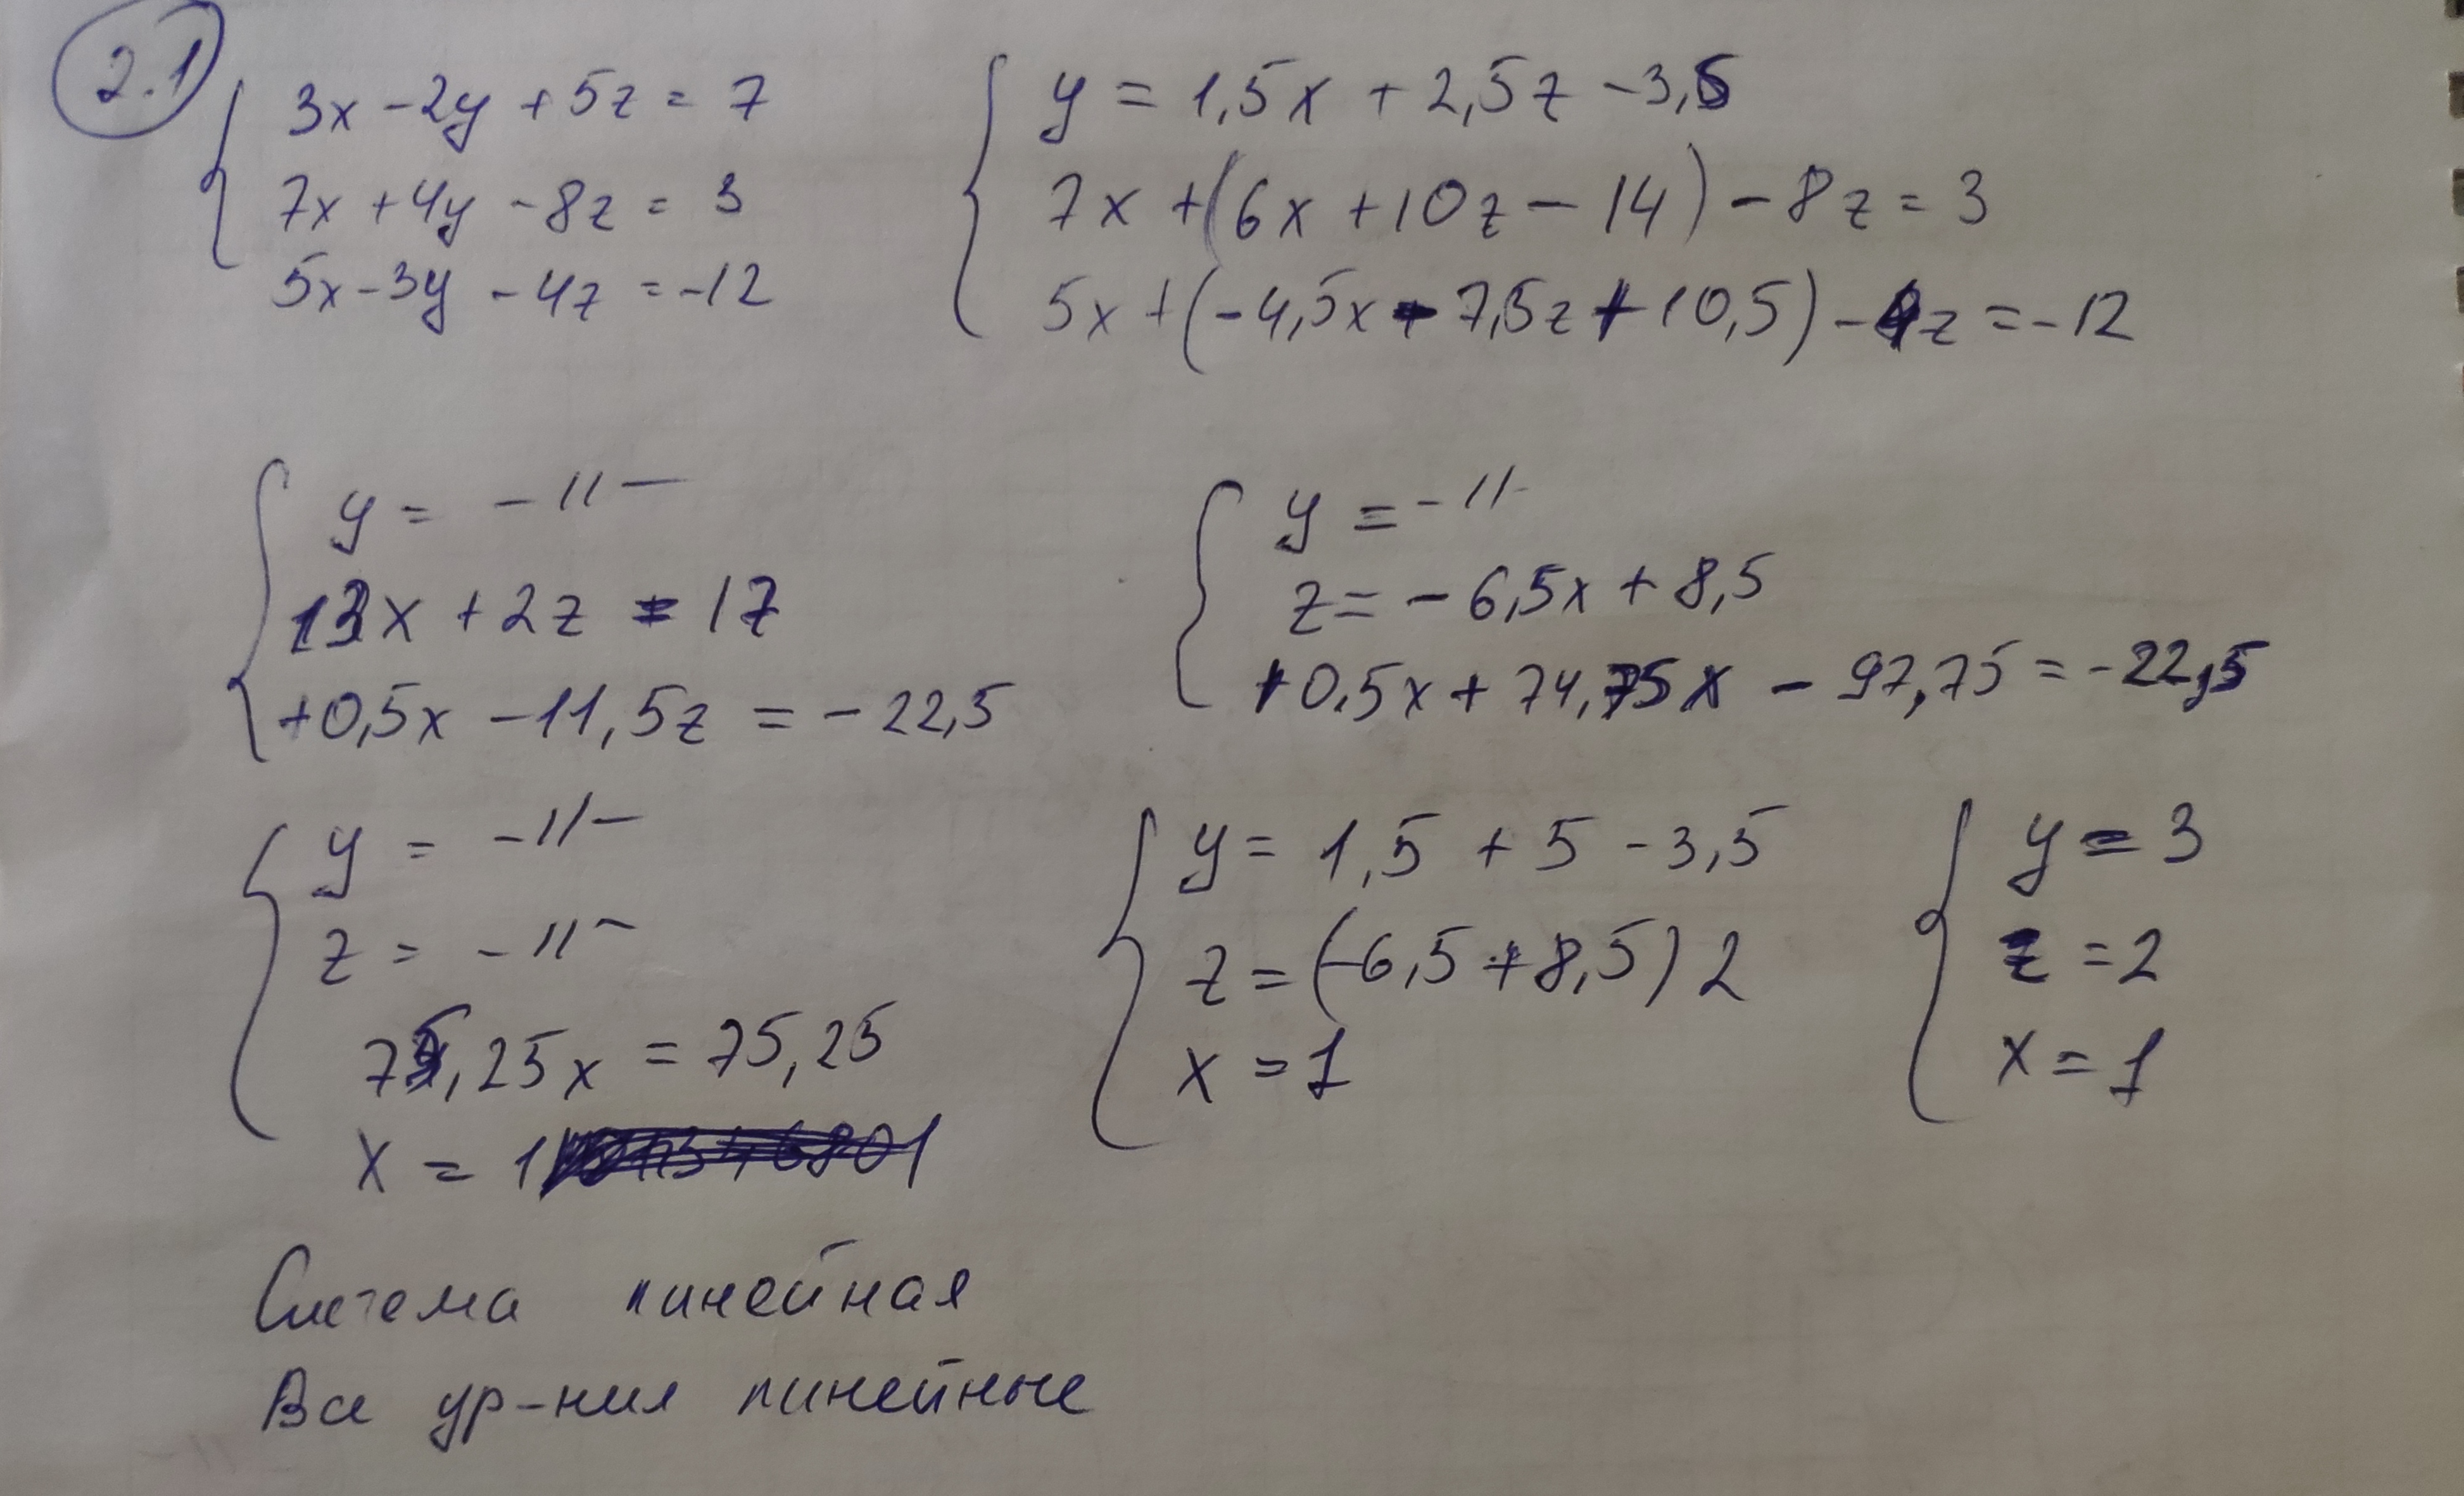 2.1
3x - 2y + 5z = 7
7x + 4y - 8z = 3
5x - 3y - 4z = -12
y = 1,5x + 2,5z - 3,5
7x + (6x + 10z - 14) - 8z = 3
5x + (-4,5x - 7,5z + 10,5) - 4z = -12
y = -//-
13x + 2z = 17
+0,5x - 11,5z = -22,5
y = -//-
z = -6,5x + 8,5
+0,5x + 74,75x - 97,75 = -22,5
y = -//-
z = -//-
75,25x = 75,25
x = 1
y = 1,5 + 5 - 3,5
z = (-6,5 + 8,5) 2
x = 1
y = 3
z = 2
x = 1
Система линейная
Все ур-ния линейные